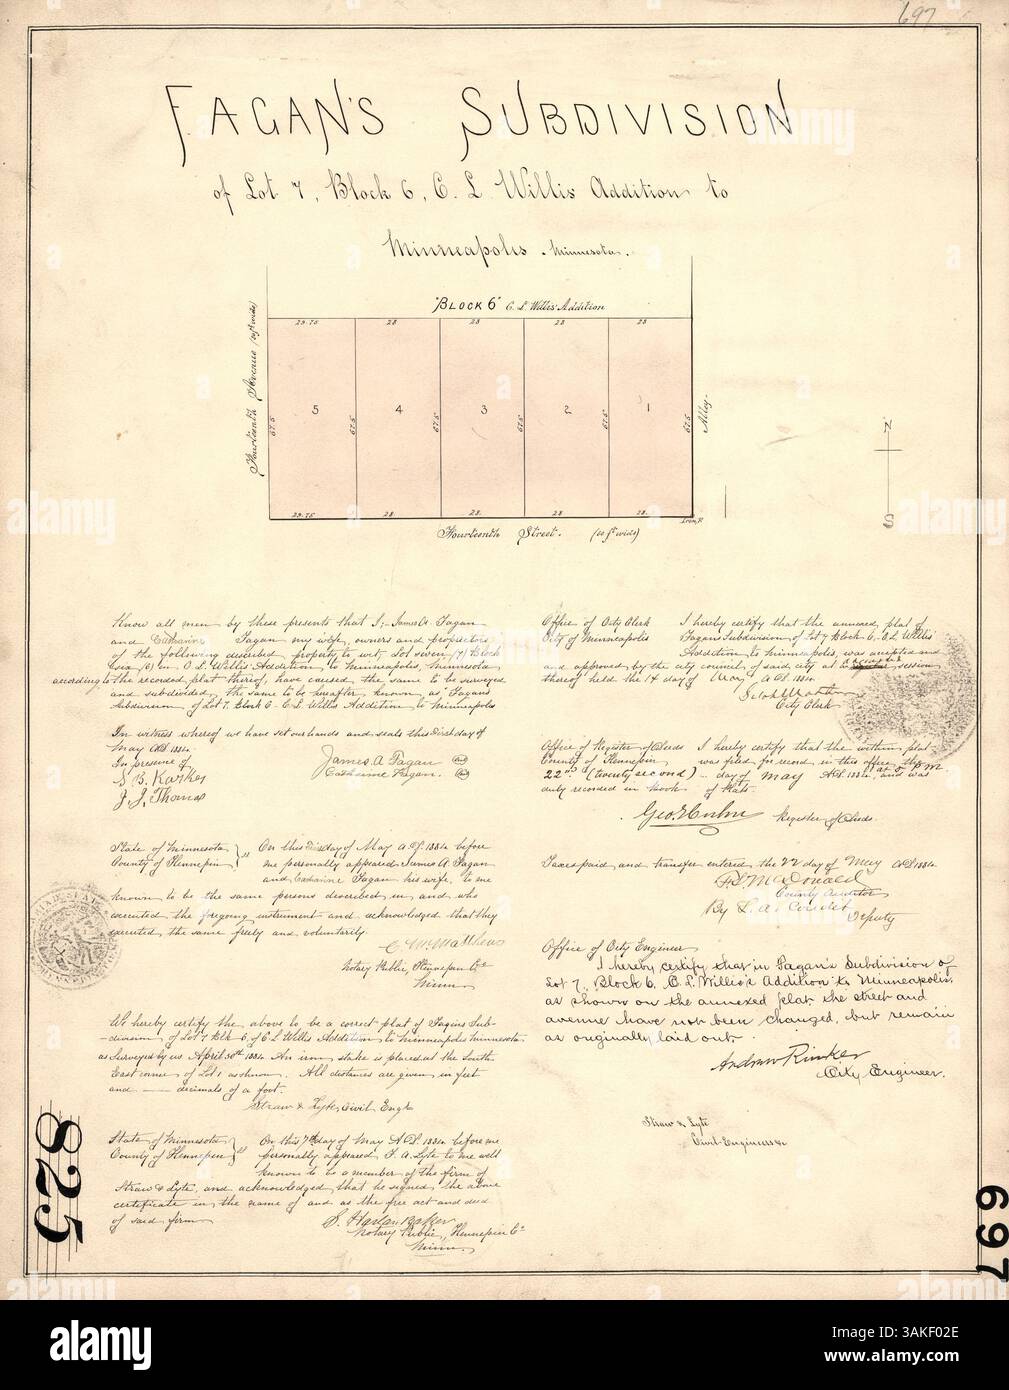 697
FAGAN'S SUBDIVISION
of Lot 7, Block 6, C. L. Willis Addition to
Minneapolis - Minnesota.
"BLOCK 6" C. L. Willis' Addition
29.75 28 28 28 28
Fourteenth Avenue
5 4 3 2 1
67.5 67.5 67.5 67.5 67.5
Alley.
N
S
29.75 28. 28 28 28.
Fourteenth Street. (60 ft wide)
Know all men by these presents that I, James A. Fagan
and Catharine Fagan my wife, owners and proprietors
of the following described property, to wit, Lot seven (7) Block
six (6) in C. L. Willis Addition, to Minneapolis, Minnesota
according to the recorded plat thereof, have caused the same to be surveyed
and subdivided, the same to be known as Fagan's
Subdivision of Lot 7, Block 6 C. L. Willis' Addition to Minneapolis
In witness whereof we have set our hands and seals this day of
May A.D. 1884.
In presence of
James A. Fagan
Catharine Fagan.
J. J. Thomas
State of Minnesota
County of Hennepin } ss
On this day of May A.D. 1884 before
me personally appeared James A. Fagan
and Catharine Fagan his wife, to me
known to be the same persons described in and who
executed the foregoing instrument and acknowledged that they
executed the same freely and voluntarily.
Notary Public, Hennepin Co.
Minn
We hereby certify the above to be a correct plat of Fagins Sub-
-division of Lot 7 Blk 6, of C. L. Willis Addition to Minneapolis Minnesota
as Surveyed by us April 30th 1884. An iron stake is placed at the South
East corner of Lot 1 as shown. All distances are given in feet
and decimals of a foot.
Straw & Lyte, Civil Engs
State of Minnesota
County of Hennepin } ss
On this 7th day of May A.D. 1884 before me
personally appeared F. A. Lyte to me well
known to be a member of the firm of
Straw & Lyte, and acknowledged that he signed the above
certificate in the name of and as the free act and deed
of said firm
Notary Public, Hennepin Co.
Minn.
Office of City Clerk
City of Minneapolis
I hereby certify that the annexed plat of
Fagans Subdivision of Lot 7 Block 6 C. L. Willis'
Addition to Minneapolis, was accepted and
and approved by the city council of said city at a session
thereof held the 14 day of May A.D. 1884
City Clerk
Office of Register of Deeds
County of Hennepin
I hereby certify that the within plat
was filed for record in this office the
22nd (twenty second) day of May A.D. 1884 at P.M. and was
duly recorded in book of Plats.
Register of Deeds
Taxes paid and transfer entered the 22 day of May A.D. 1884
McDonald
County Auditor
By Deputy
Office of City Engineer
I hereby certify that in Fagan's Subdivision of
Lot 7, Block 6, C. L. Willis's Addition to Minneapolis,
as shown on the annexed plat, the street and
avenue have not been changed, but remain
as originally laid out.
Andrew Rinker
City Engineer.
Straw & Lyte
Civil Engineers
825
697
alamy
2AKF02E
www.alamy.com